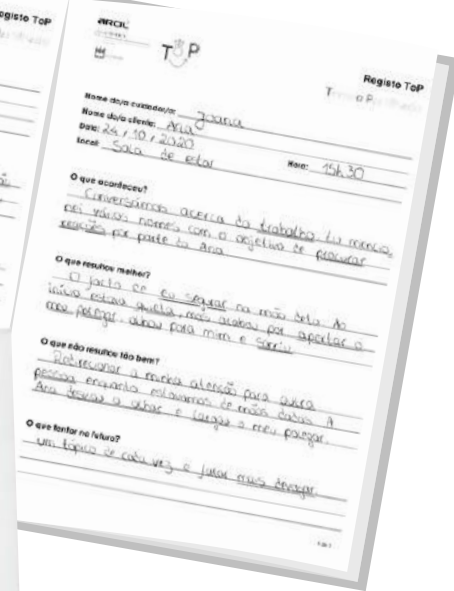 Registo ToP
ARCIL
ToP
Registo ToP
Nome do/a cuidador/a: Joana
Nome do/a cliente: Ana
Data: 24 / 10 / 2020
Local: Sala de estar Hora: 15h30
O que aconteceu?
Conversámos acerca do trabalho. Eu mencio
nei vários nomes com o objetivo de procurar
reações por parte da Ana
O que resultou melhor?
O facto de eu segurar na mão dela. Ao
início estava quieta, mas acabou por apertar o
meu polegar, olhou para mim e sorriu.
O que não resultou tão bem?
Redirecionar a minha atenção para outra
pessoa enquanto estávamos de mãos dadas. A
Ana deixou de olhar e largou o meu polegar.
O que tentar no futuro?
um tópico de cada vez e falar mais devagar.